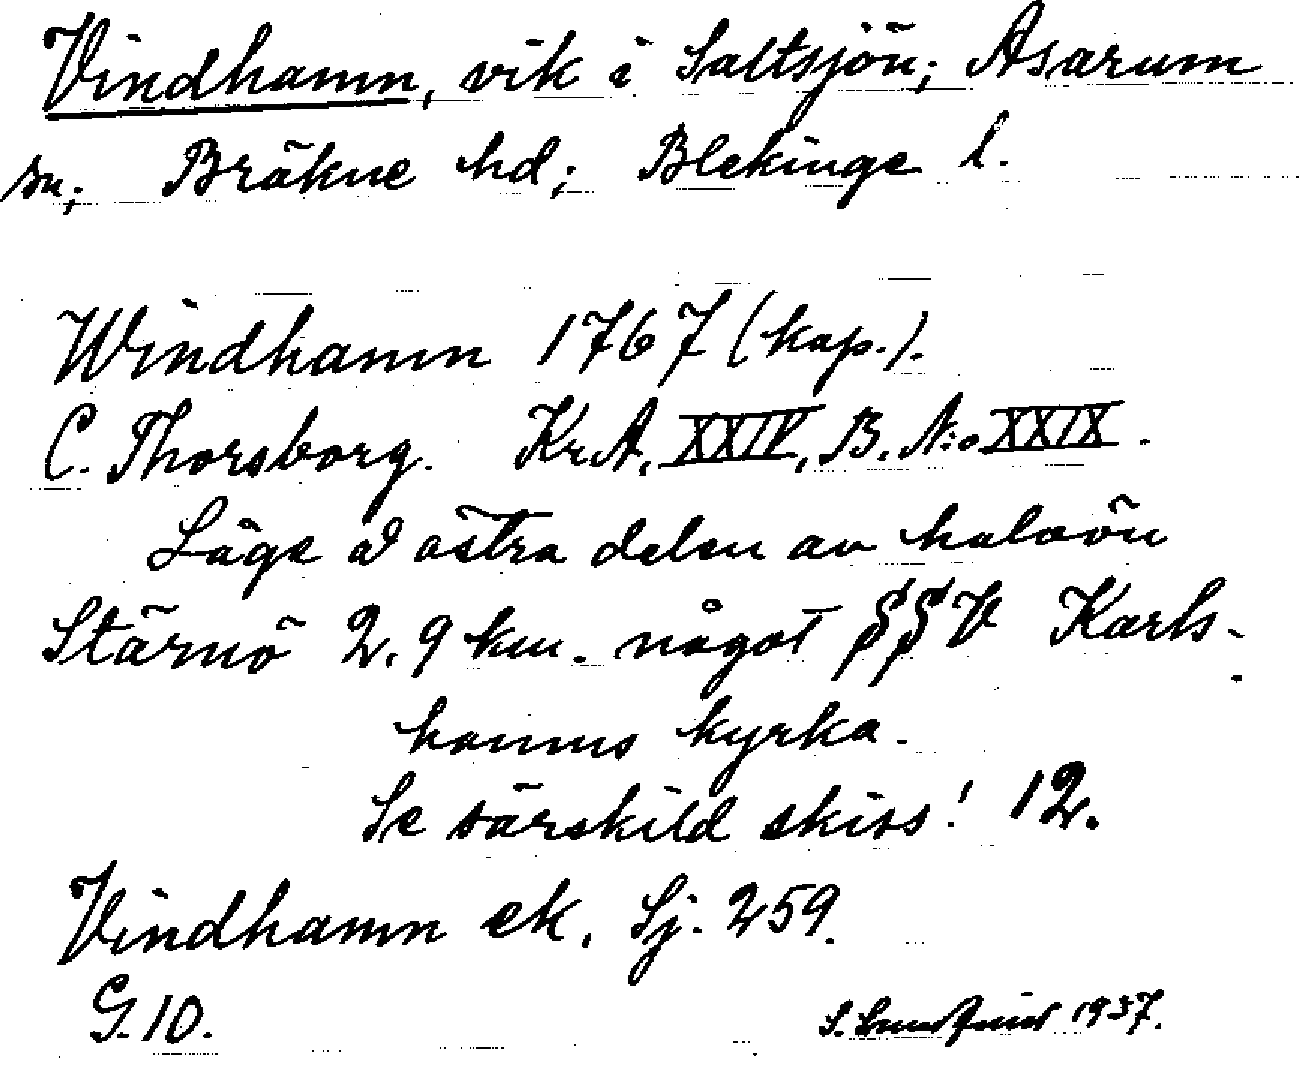 Vindhamn, vik i Saltsjön; Asarum
sn; Bräkne hd; Blekinge l.
Windhamn 1767 (kap.).
C. Thorsborg. Kr.A. XXIV, B. N:o XXIX.
Läge å östra delen av halvön
Stärnö 2.9 km. något SSV Karls-
hamns kyrka.
Se särskild skiss! 12.
Vindhamn ek. Sj. 259.
G. 10.
S. 1937.